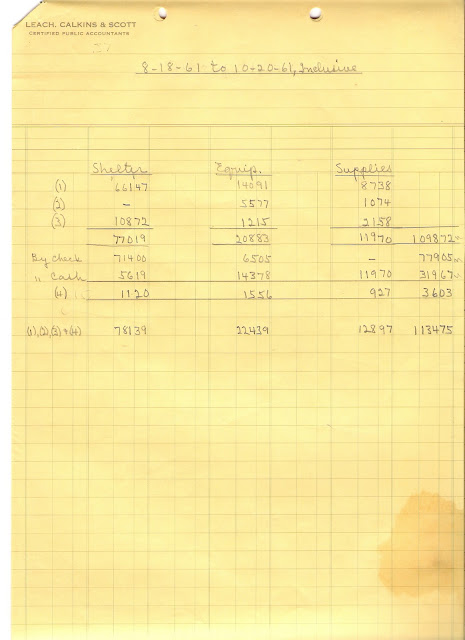 LEACH, CALKINS & SCOTT
CERTIFIED PUBLIC ACCOUNTANTS
8-18-61 to 10-20-61, Inclusive
Shelter Equip. Supplies
(1) 66147 14091 8738
(2) - 5577 1074
(3) 10872 1215 2158
77019 20883 11970 109872
By check 71400 6505 - 77905
" Cash 5619 14378 11970 31967
(4) 1120 1556 927 3603
(1),(2),(3)+(4) 78139 22439 12897 113475